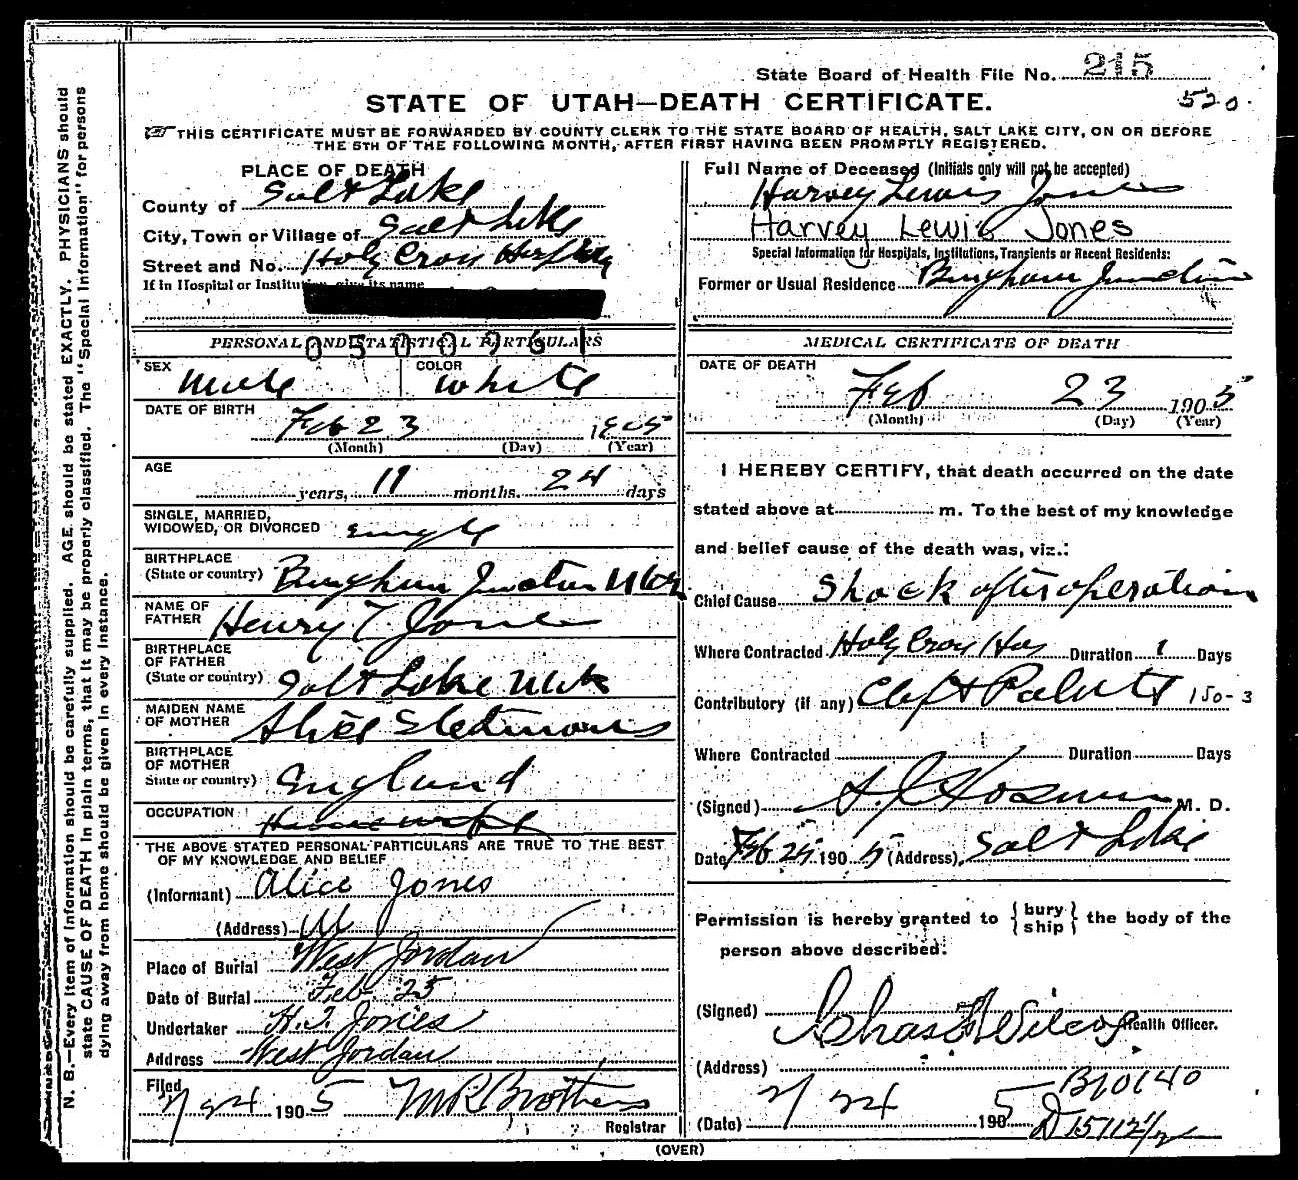 State Board of Health File No. 215
520.
STATE OF UTAH—DEATH CERTIFICATE.
THIS CERTIFICATE MUST BE FORWARDED BY COUNTY CLERK TO THE STATE BOARD OF HEALTH, SALT LAKE CITY, ON OR BEFORE
THE 5TH OF THE FOLLOWING MONTH, AFTER FIRST HAVING BEEN PROMPTLY REGISTERED.
N. B.—Every item of information should be carefully supplied. AGE should be stated EXACTLY. PHYSICIANS should
state CAUSE OF DEATH in plain terms, that it may be properly classified. The "Special Information" for persons
dying away from home should be given in every instance.
PLACE OF DEATH
County of Salt Lake
City, Town or Village of Salt Lake
Street and No. Holy Cross Hospital
If in Hospital or Institution, give its name
0500961
PERSONAL AND STATISTICAL PARTICULARS
SEX Male COLOR white
DATE OF BIRTH
Feb 23 1905
(Month) (Day) (Year)
AGE
years, 11 months. 24 days
SINGLE, MARRIED,
WIDOWED, OR DIVORCED single
BIRTHPLACE
(State or country) Bingham Junction Utah
NAME OF
FATHER Henry T Jones
BIRTHPLACE
OF FATHER
(State or country) Salt Lake Utah
MAIDEN NAME
OF MOTHER Alice
BIRTHPLACE
OF MOTHER
State or country) England
OCCUPATION
THE ABOVE STATED PERSONAL PARTICULARS ARE TRUE TO THE BEST
OF MY KNOWLEDGE AND BELIEF
(Informant) Alice Jones
(Address)
Place of Burial West Jordan
Date of Burial Feb 25
Undertaker H. T. Jones
Address West Jordan
Filed
2/24 1905 M R Brothers
Registrar
Full Name of Deceased (Initials only will not be accepted)
Harvey Lewis Jones
Harvey Lewis Jones
Special Information for Hospitals, Institutions, Transients or Recent Residents:
Former or Usual Residence Bingham Junction
MEDICAL CERTIFICATE OF DEATH
DATE OF DEATH
Feb 23 1905
(Month) (Day) (Year)
I HEREBY CERTIFY, that death occurred on the date
stated above at m. To the best of my knowledge
and belief cause of the death was, viz.:
Chief Cause Shock after operation
Where Contracted Holy Cross Hos Duration 1 Days
Contributory (if any) Cleft Palate 150-3
Where Contracted Duration Days
(Signed) M. D.
Date Feb 25 1905 (Address), Salt Lake
Permission is hereby granted to {bury ship} the body of the
person above described.
(Signed) Chas Wilcox Health Officer.
(Address)
B10140
(Date) 2/24 1905
D 15112 1/2
(OVER)